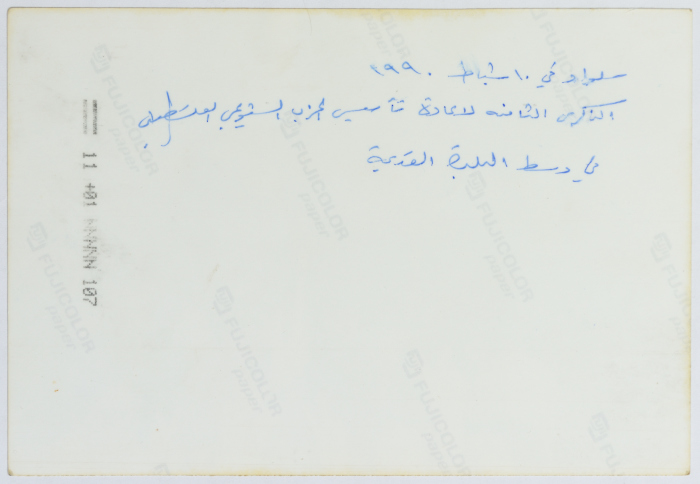 سلواد في ١٠ شباط ١٩٩٠
الذكرى الثامنه لاعادة تأسيس الحزب الشيوعي الفلسطيني
في وسط البلدة القديمة
11 +01 NNNNN 107
FUJICOLOR
paper
FUJICOLOR
paper
FUJICOLOR
paper
FUJICOLOR
paper
FUJICOLOR
paper
FUJICOLOR
paper
FUJICOLOR
paper
FUJICOLOR
paper